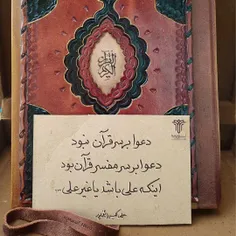 القرآن الكريم
دعوا بر سر قرآن نبود
دعوا بر سر مفسر قرآن بود
اینکه علی باشد یا غیر علی ...